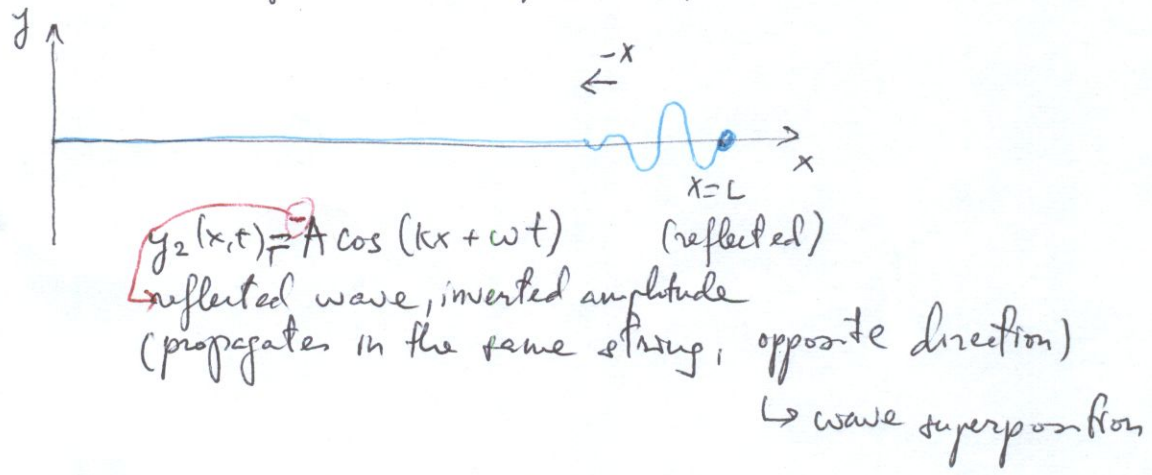 y
-x
x
x=L
y₂(x,t) = -A cos (kx + ωt) (reflected)
reflected wave, inverted amplitude
(propagates in the same string, opposite direction)
↳ wave superposition